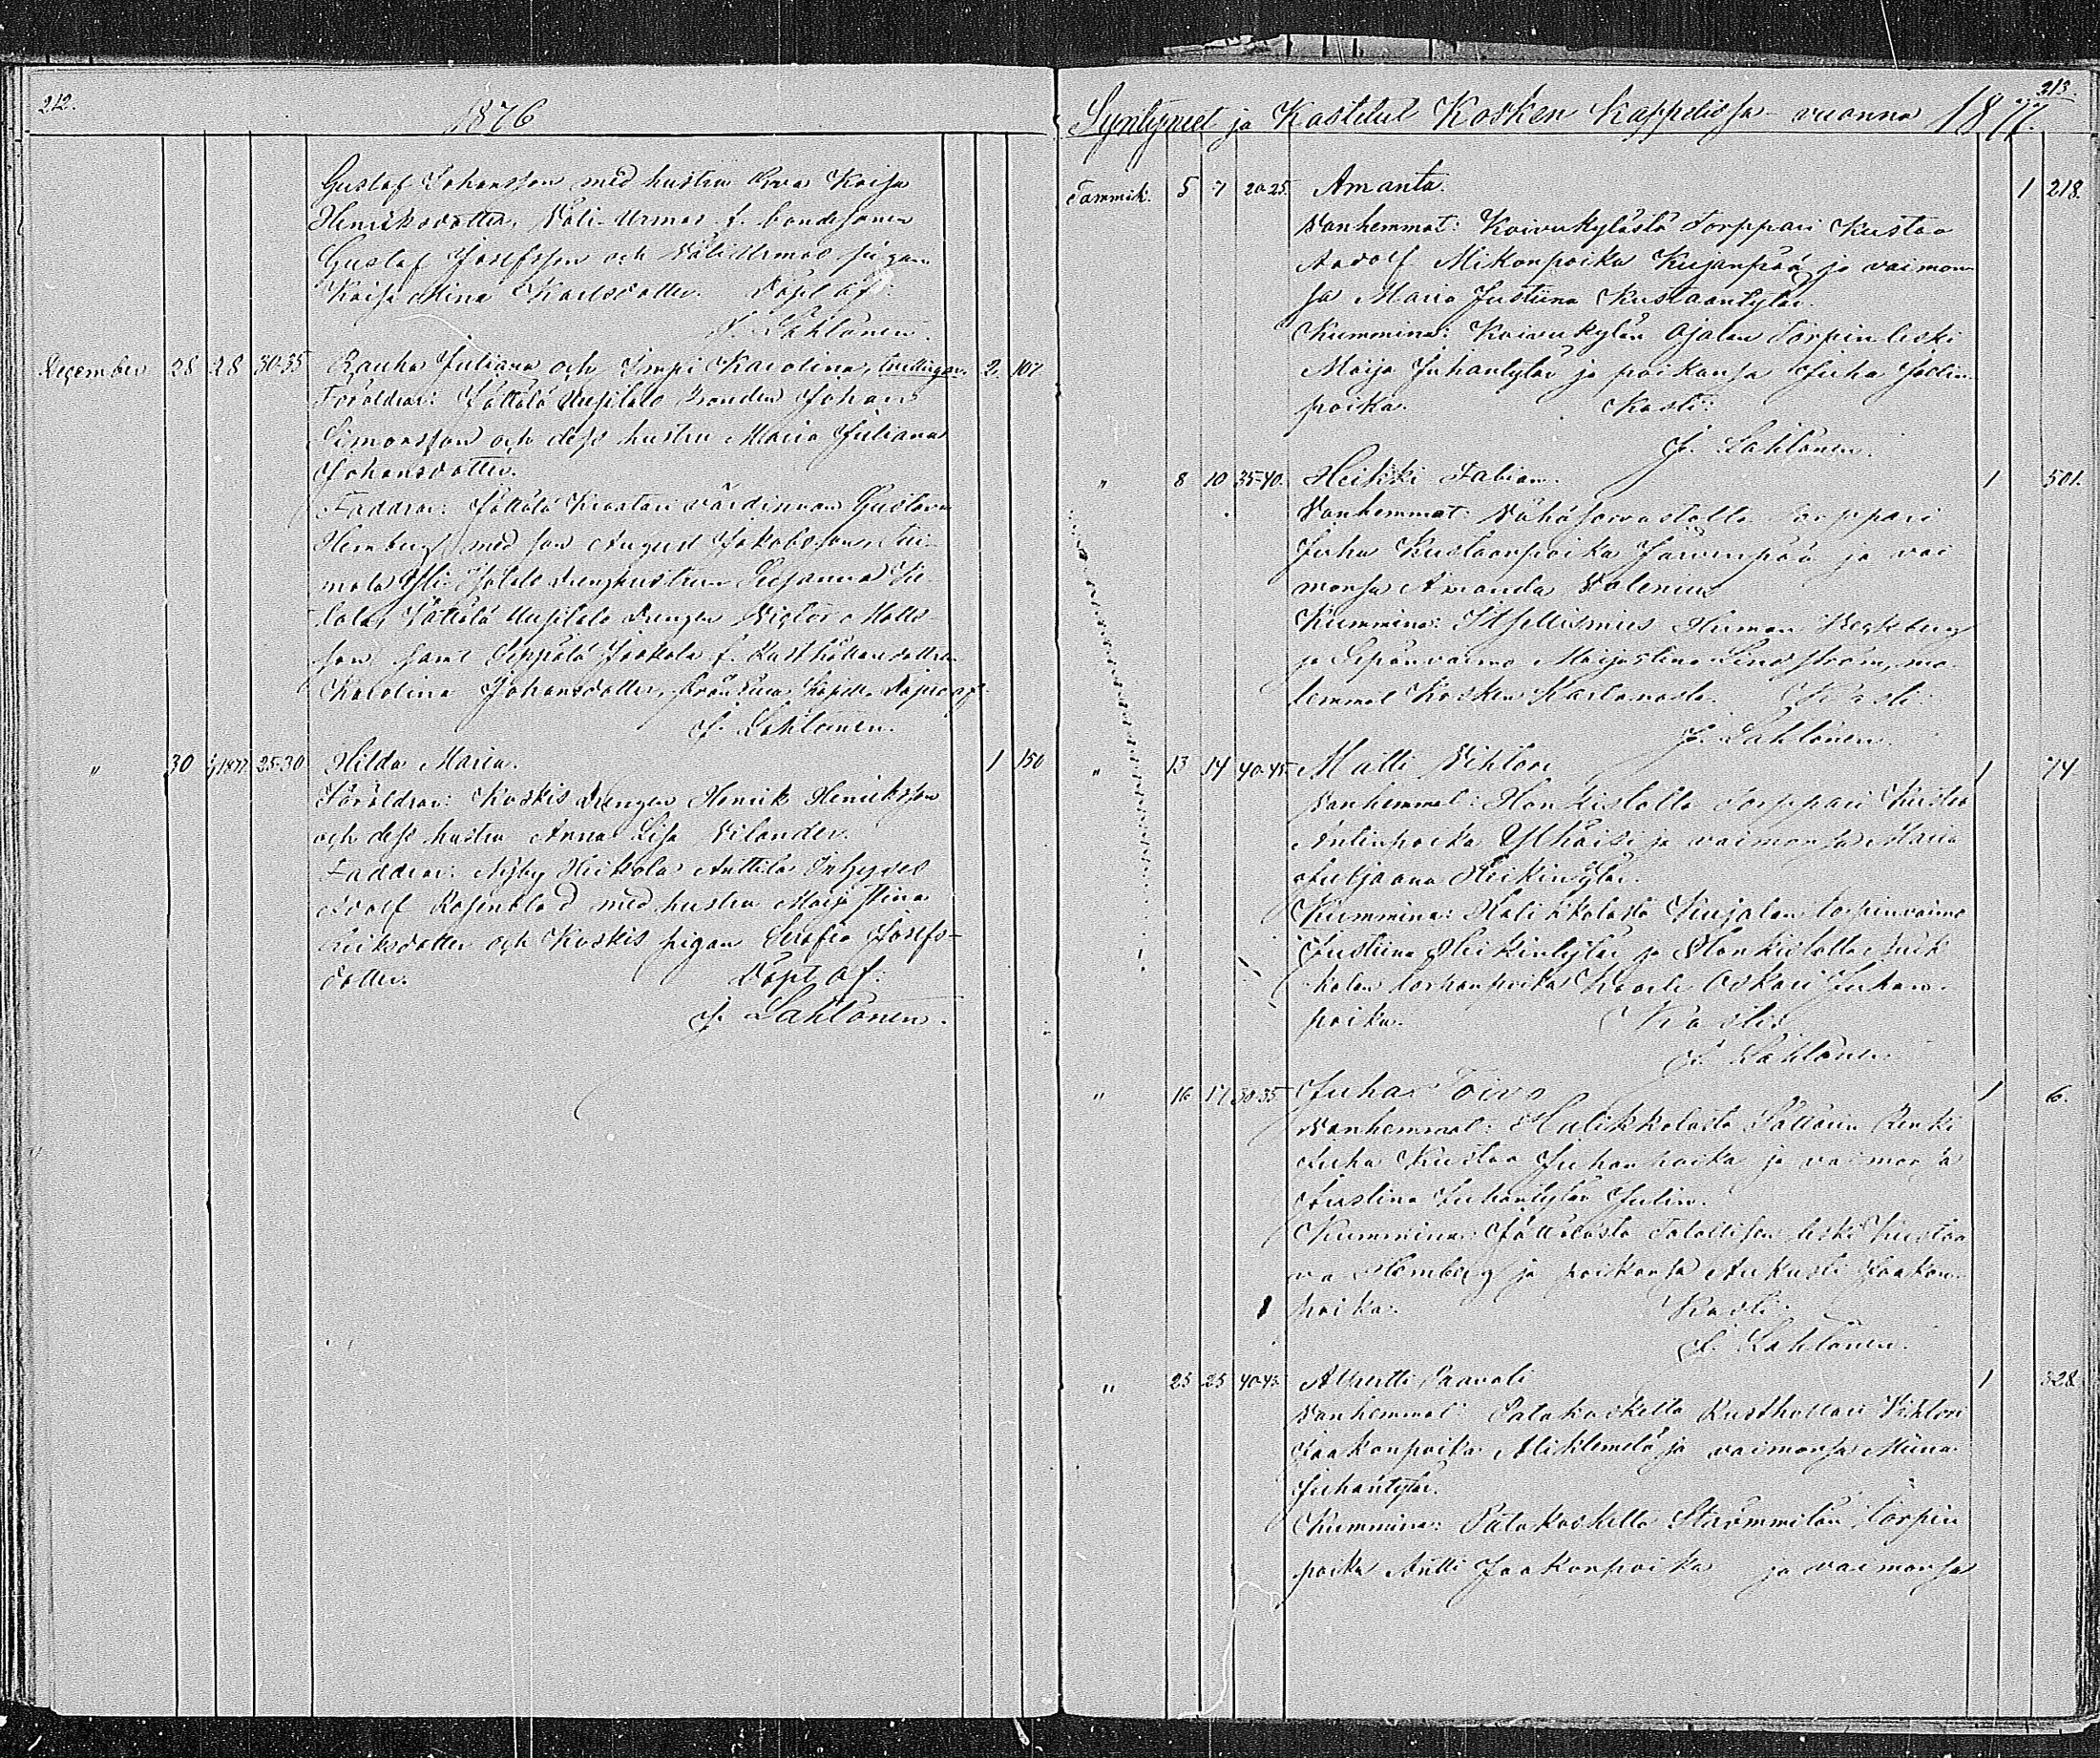 212.
1876
Gustaf Johansson med hustru Eva Kaisa
Henriksdotter, Väli-Urmas f. bondesonen
Gustaf Josefsson och Väli Urmas pigan
Kaisa Mina Karlsdotter. Döpt af:
J. Lahtonen.
December 28 28 30-35 Rauha Juliana och Impi Karolina, tvillingar. 2. 107
Föräldrar: Sättälä Uusitalo bonden Johan
Simonsson och dess hustru Maria Juliana
Johansdotter.
Faddrar: Sättälä värdinnan Gustava
Hemberg med son August Jakobsson,
drenghustrun Susanna
Sättälä Uusitalo Drengen Victor Matts-
son samt Seppälä Jaakola f. Rusthållaredottren
Karolina Johansdotter, Döpte af
J. Lahtonen.
" 30 1877 25-30 Hilda Maria. 1 150
Föräldrar: Koskis Drengen Henrik Henriksson
och dess hustru Anna Lisa Vilander.
Faddrar: Nyby Heikola Anttila Inhyses
Adolf Rosenblad med hustru Maija Stina
Eriksdotter och Koskis pigan Serafia Josefs-
dotter. Döpt af:
J. Lahtonen.
213.
Syntyneet ja Kastetut Kosken Kappelissa vuonna 1877.
Tammik. 5 7 20-25. Amanta. 1 218.
Vanhemmat: Koivukylästä Torppari Kustaa
Aadolf Mikonpoika Kujanpää ja vaimon-
sa Maria Justiina Kustaantytär.
Kummina: Koivukylän Ojalan Torpinleski
Maija Juhantytär ja poikansa Juha
poika. Kasti:
J. Lahtonen.
" 8 10 35-40. Heikki Fabian. 1 501.
Vanhemmat: Torppari
Juha Kustaanpoika Järvenpää ja vai
monsa Amanda Valenius
Kummina: Itsellismies Herman Beckberg
ja Sepänvaimo Maijastina Lindström, mo-
lemmat Kosken Kartanosta. Kasti:
J. Lahtonen.
" 13 14 40-45. Matti Vihtori 1 74.
Vanhemmat: Honkistolta Torppari Kustaa
Antinpoika Ylhäisi ja vaimonsa Maria
Juljaana Heikintytär.
Kummina: Halikkolasta Kujalan torpinvaimo
Justiina Heikintytär ja Honkistolta
Kaarle Oskari Juhan-
poika. Kasti:
J. Lahtonen.
" 16 17 30-35 Juha Toivo 1 6.
Vanhemmat: Halikkolasta Renki
Juha Kustaa Juhanpoika ja vaimonsa
Justina Juhantytär Julin.
Kummina: Sättälästä Talollisen leski Kustaa
va Hemberg ja poikansa Aukusti Jaakon-
poika. Kasti:
J. Lahtonen.
" 25 25 40-45. Albertti Paavali 1 328.
Vanhemmat: Patakoskelta Rusthollari Vihtori
Jaakonpoika ja vaimonsa Miina
Juhantytär.
Kummina: Patakoskelta Strömmilän Torpin
poika Antti Jaakonpoika ja vaimonsa